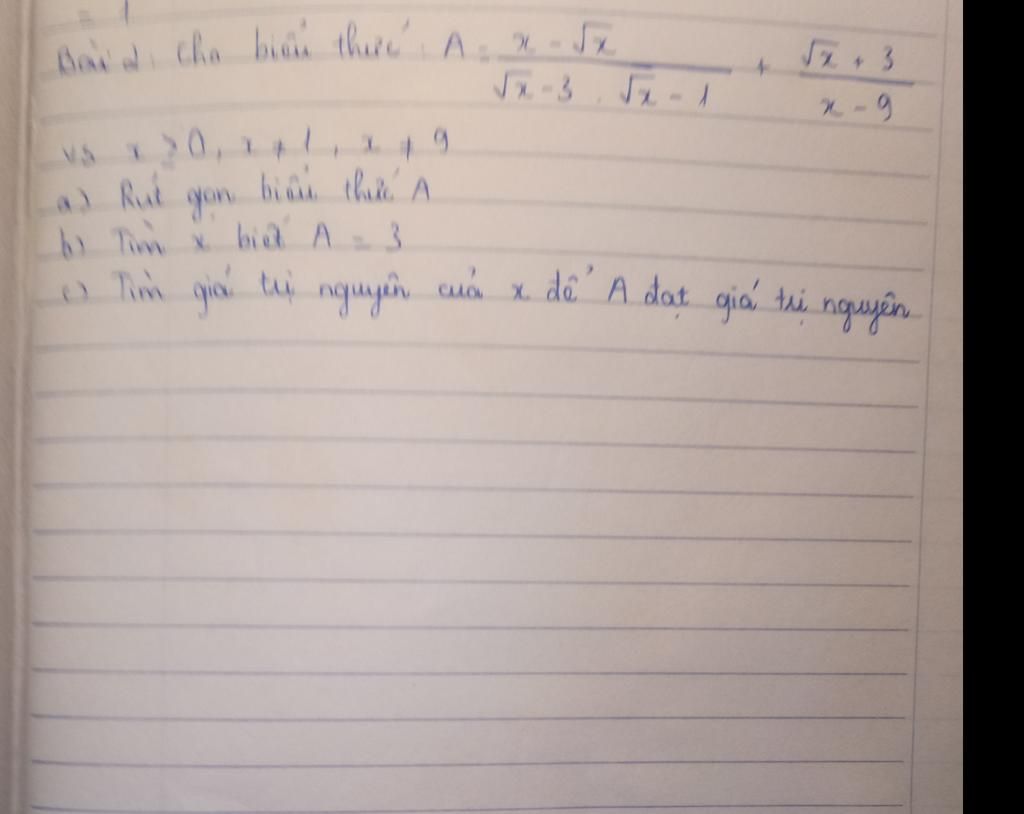 = 1
Bài 2: Cho biểu thức: A = \frac{x - \sqrt{x}}{\sqrt{x} - 3 . \sqrt{x} - 1} + \frac{\sqrt{x} + 3}{x - 9}
với x ≥ 0, x ≠ 1, x ≠ 9
a) Rút gọn biểu thức A
b) Tìm x biết A = 3
c) Tìm giá trị nguyên của x để A đạt giá trị nguyên